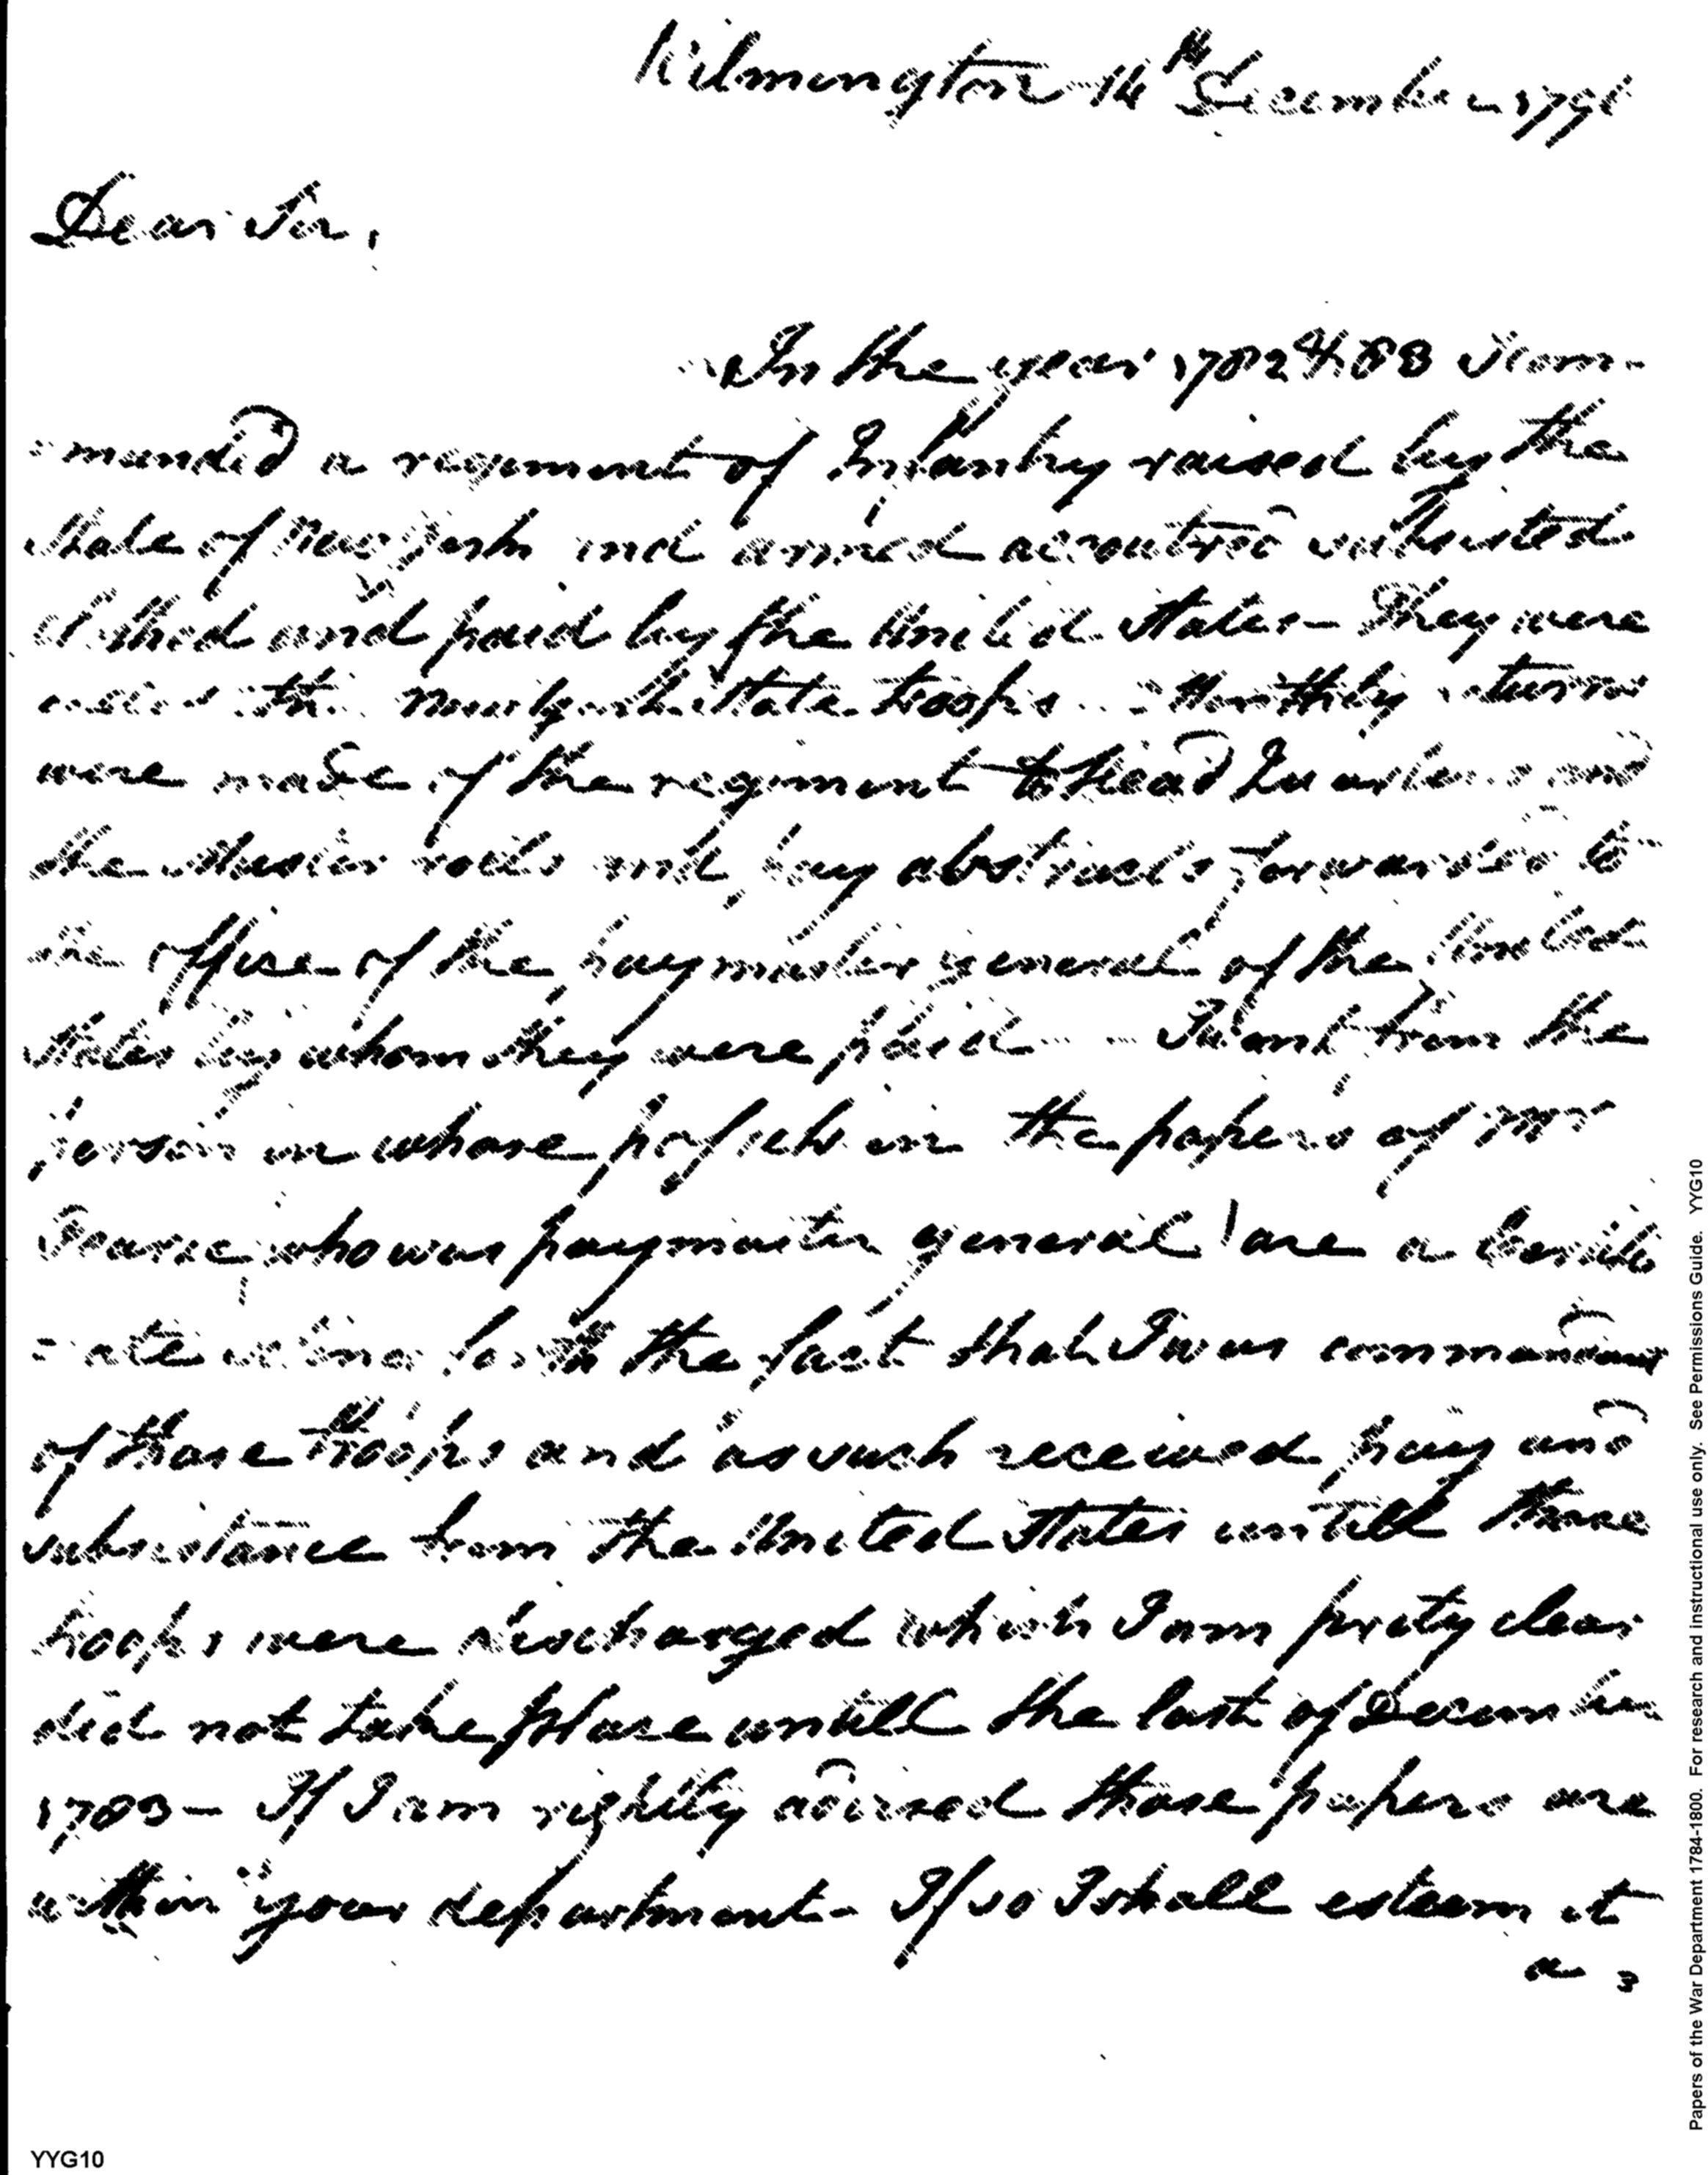 Wilmington 14th December 1791
Dear Sir,
In the year 1782 & 83 I com-
-manded a regiment of Infantry raised by the
State of New York and armed accoutred subsisted
Clothed and paid by the United States - They were
the New York State troops - Monthly returns
were made of the regiment to head Quarters and
the Muster rolls and pay abstracts forwarded to
the office of the paymaster general of the United
States by whom they were paid - I want from the
person in whose possession the papers of Mr
Pearce who was paymaster general are a Certifi
-cate setting forth the fact that I was commandant
of those troops and as such received pay and
subsistance from the United States untill those
troops were discharged which I am prety clear
did not take place untill the last of December
1783 - If I am rightly advised those papers are
within your department - If so I shall esteem it
a
YYG10
Papers of the War Department 1784-1800. For research and instructional use only. See Permissions Guide. YYG10